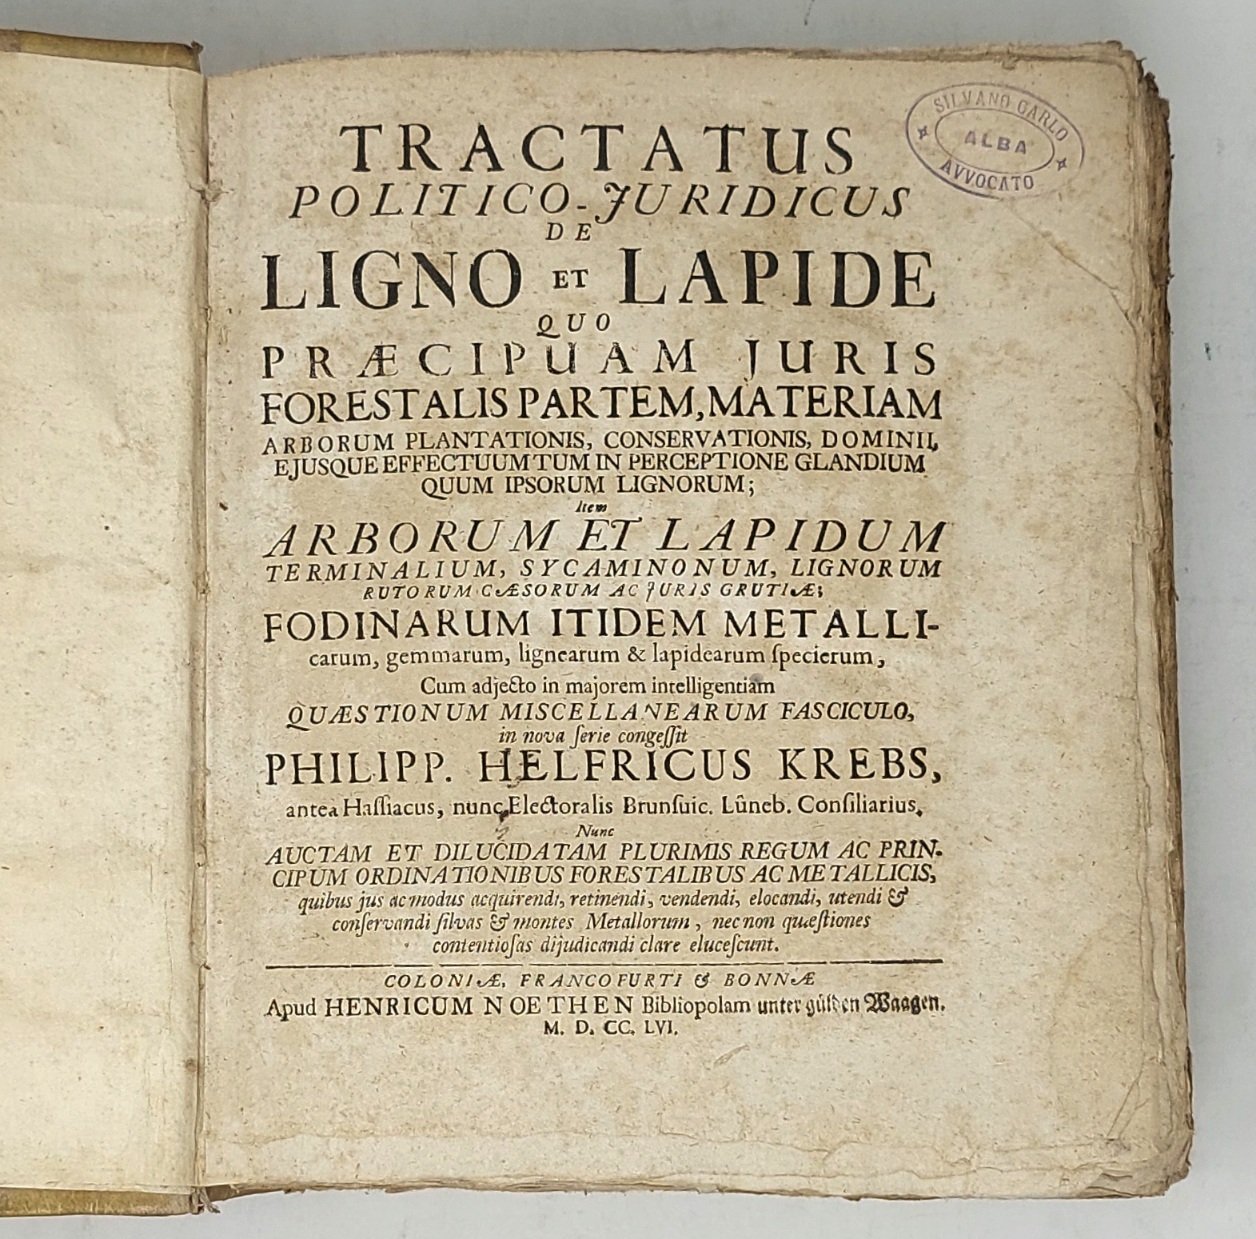 TRACTATUS
POLITICO-JURIDICUS
DE
LIGNO ET LAPIDE
QUO
PRÆCIPUAM JURIS
FORESTALIS PARTEM, MATERIAM
ARBORUM PLANTATIONIS, CONSERVATIONIS, DOMINII,
EJUSQUE EFFECTUUM TUM IN PERCEPTIONE GLANDIUM
QUUM IPSORUM LIGNORUM;
Item
ARBORUM ET LAPIDUM
TERMINALIUM, SYCAMINONUM, LIGNORUM
RUTORUM CÆSORUM AC JURIS GRUTIÆ;
FODINARUM ITIDEM METALLI-
carum, gemmarum, lignearum & lapidearum ſpecierum,
Cum adjecto in majorem intelligentiam
QUÆSTIONUM MISCELLANEARUM FASCICULO,
in nova ſerie congeſſit
PHILIPP. HELFRICUS KREBS,
antea Haſſiacus, nunc Electoralis Brunſuic. Lûneb. Conſiliarius.
Nunc
AUCTAM ET DILUCIDATAM PLURIMIS REGUM AC PRIN-
CIPUM ORDINATIONIBUS FORESTALIBUS AC METALLICIS,
quibus jus ac modus acquirendi, retinendi, vendendi, elocandi, utendi &
conſervandi ſilvas & montes Metallorum, nec non quæſtiones
contentioſas dijudicandi clare eluceſcunt.
COLONIÆ, FRANCOFURTI & BONNÆ
Apud HENRICUM NOETHEN Bibliopolam unter gûlden Waagen.
M. D. CC. LVI.
SILVANO CARLO
ALBA
AVVOCATO